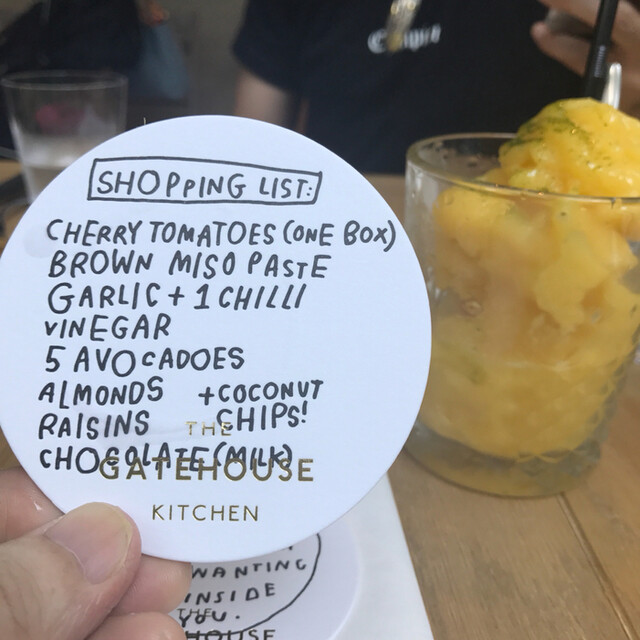 SHOPPING LIST:
CHERRY TOMATOES (ONE BOX)
BROWN MISO PASTE
GARLIC + 1 CHILLI
VINEGAR
5 AVOCADOES
ALMONDS + COCONUT
RAISINS CHIPS!
CHOCOLATE (MILK)
THE
GATEHOUSE
KITCHEN
WANTING
INSIDE
YOU.
THE
HOUSE